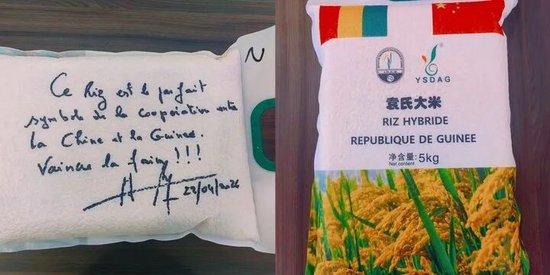 Ce Riz est le parfait
symbole de la cooperation entre
la Chine et la Guinée.
Vaincre la faim !!!
22/04/2026
N
YSDAG
袁氏大米
RIZ HYBRIDE
REPUBLIQUE DE GUINEE
净含量: 5kg
Net content